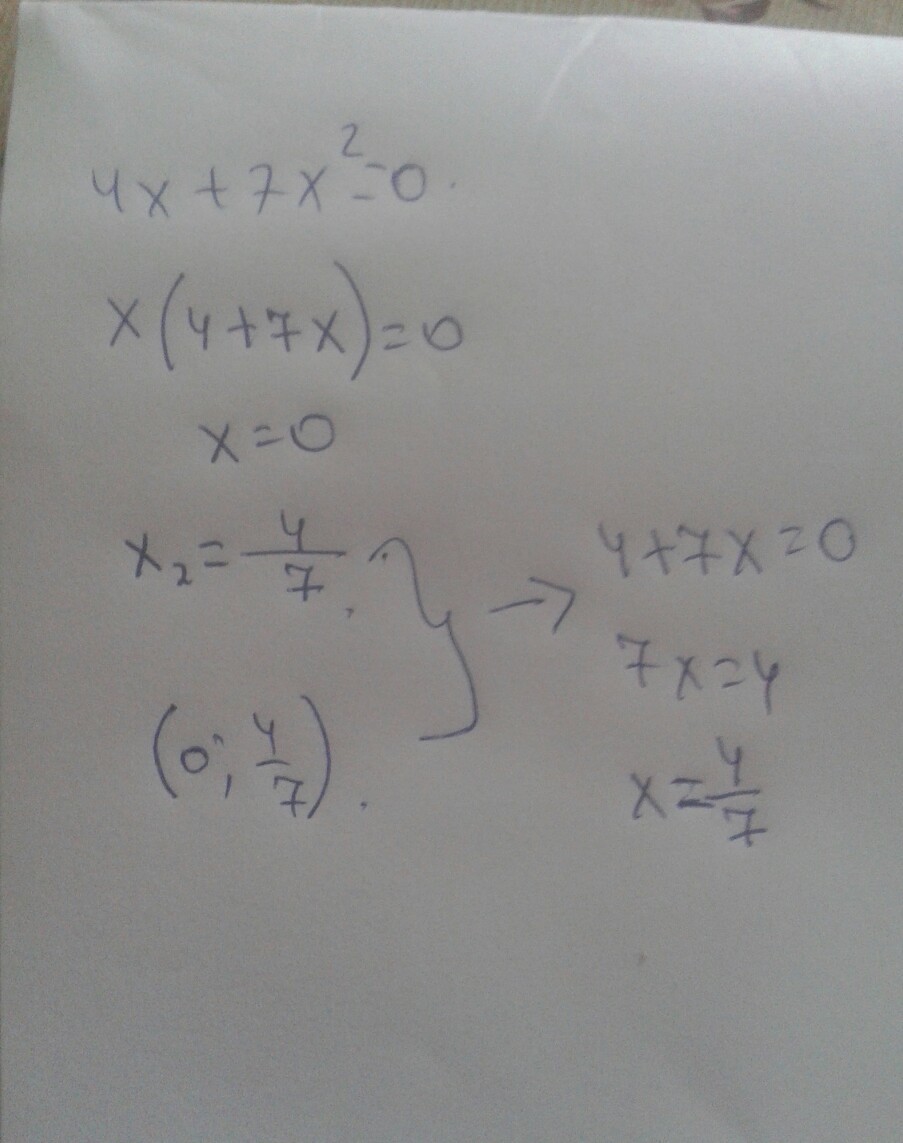 4x + 7x² = 0.
x(4+7x)=0
x=0
x₂ = 4/7.
(0; 4/7).
→ 4+7x=0
7x=4
x=4/7